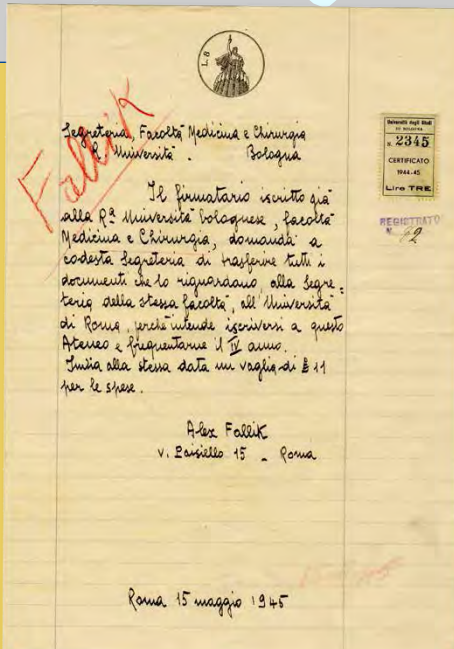 L 8
Fallik
Segreteria Facoltà Medicina e Chirurgia
R. Università . Bologna
Università degli Studi
DI BOLOGNA
N. 2345
CERTIFICATO
1944-45
Lire TRE
REGISTRATO
N. 62
Il firmatario iscritto già
alla Rª Università bolognese, facoltà
Medicina e Chirurgia, domanda a
codesta Segreteria di trasferire tutti i
documenti che lo riguardano, alla Segre=
teria della stessa facoltà, all'Università
di Roma, perché intende iscriversi a questo
Ateneo e frequentarne il IV anno.
Invia alla stessa data un vaglia di £ 11
per le spese.
Alex Fallik
v. Paisiello 15 - Roma
Roma 15 maggio 1945